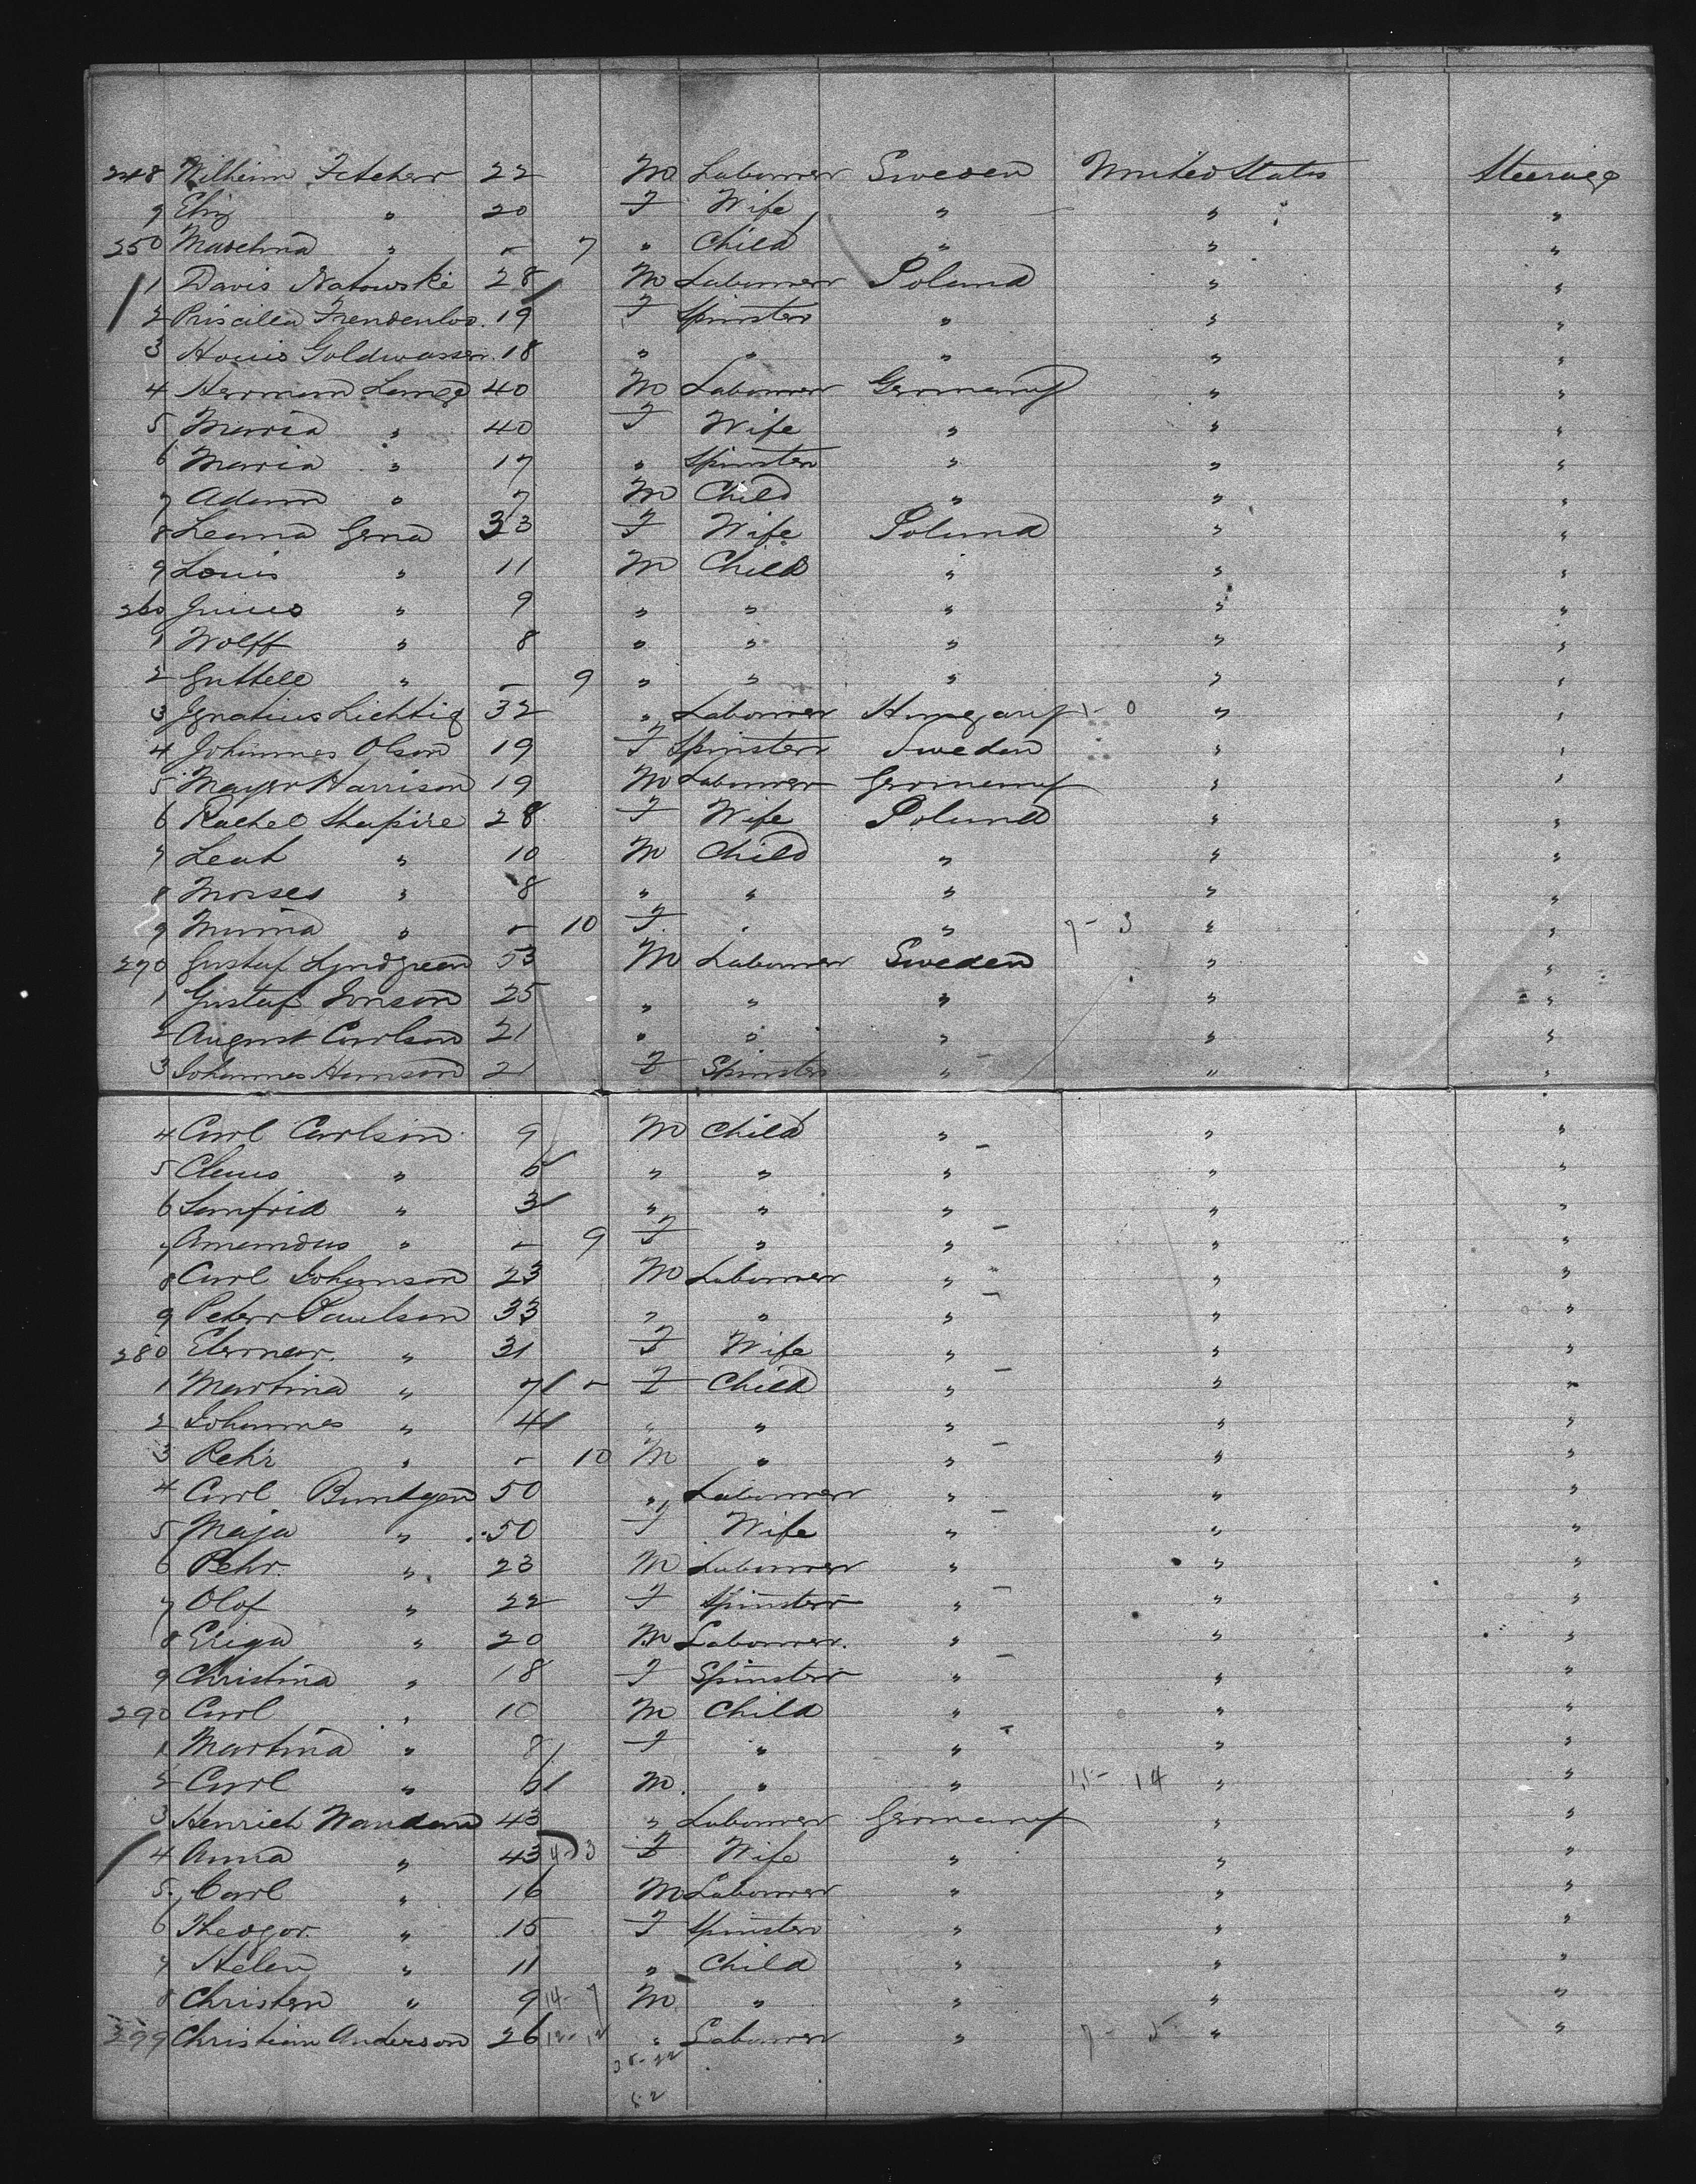 248 Wilheim Fetcherr 22 M Labourer Sweden United States Steerage
9 Eliz " 20 F Wife " " "
250 " - 7 " Child " " "
1 Davis Natowski 28 M Labourer Poland " "
2 Priscilla 19 F Spinster " " "
3 Goldwasser 18 " " " " "
4 Herrmann 40 M Labourer Germany " "
5 Maria " 40 F Wife " " "
6 Maria " 17 " Spinster " " "
7 Adam " 7 M Child " " "
8 Leana Gena 33 F Wife Poland " "
9 Louis " 11 M Child " " "
260 " 9 " " " " "
1 Wolff " 8 " " " " "
2 Guttele " - 9 " " " " "
3 Ignatius Lichtig 32 " Labourer Hungary 1- 0 " "
4 Johannes Olson 19 F Spinster Sweden " "
5 Mayer Harrison 19 M Labourer Germany " "
6 Rachel Shapire 28 F Wife Poland " "
7 Leah " 10 M Child " " "
8 Morses " 8 " " " " "
9 Minna " - 10 F " " 7- 3 " "
270 Gustaf Lyndgreen 53 M Labourer Sweden " "
1 Gustaf Jonson 25 " " " " "
2 August Carlson 21 " " " " "
3 Johannes Hanson 21 F Spinster " " "
4 Carl Carlson 9 M Child " " "
5 Claus " 5 " " " " "
6 Lanfrid " 3 " " " " "
7 Amandus " - 9 F " " " "
8 Carl Johanson 23 M Labourer " " "
9 Peter Paulson 33 " " " " "
280 " 31 F Wife " " "
1 Martina " 7 - F Child " " "
2 Johannes " 4 " " " " "
3 Pehr " - 10 M " " " "
4 Carl Buntgen 50 " Labourer " " "
5 Maja " 50 F Wife " " "
6 Pehr. " 23 M Labourer " " "
7 Olof " 22 F Spinster " " "
8 " 20 M Labourer. " " "
9 Christina " 18 F Spinster " " "
290 Carl " 10 M Child " " "
1 Martina " 8 F " " " "
2 Carl " 6 M " " 15- 14 " "
3 Henrich Wandam 43 " Labourer Germany " "
4 Anna " 43 F Wife " " "
5 Carl " 16 M Labourer " " "
6 Theodor. " 15 F Spinster " " "
7 Helen " 11 " Child " " "
8 Christen " 9 14- 7 M " " " "
299 Christian Anderson 26 12- 12 " Labourer " 7- 5 " "